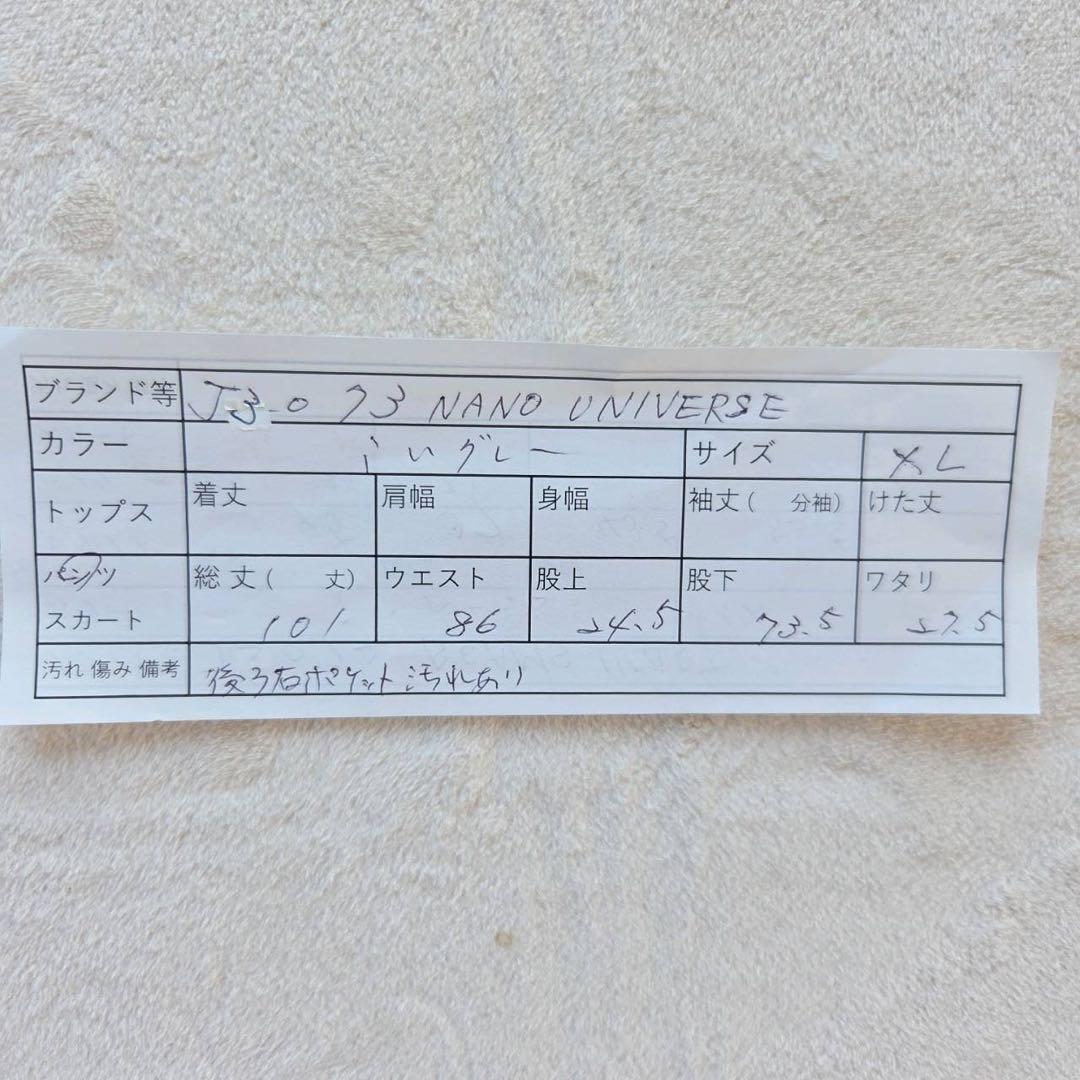 ブランド等 J3-073 NANO UNIVERSE
カラー こいグレー サイズ XL
トップス 着丈 肩幅 身幅 袖丈( 分袖) けた丈
パンツ 総丈( 丈) ウエスト 股上 股下 ワタリ
スカート 101 86 24.5 73.5 27.5
汚れ 傷み 備考 後ろ右ポケット汚れあり